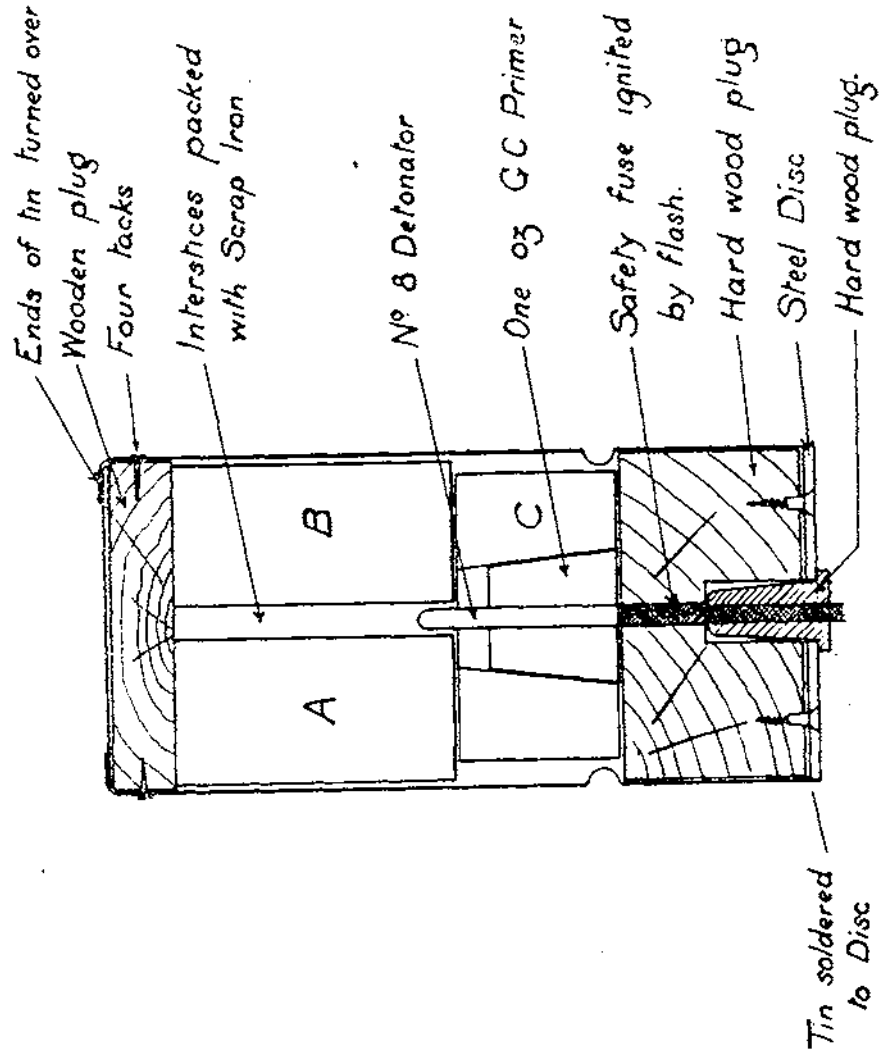 Ends of tin turned over
Wooden plug
Four tacks
Interstices packed
with Scrap Iron
Nº 8 Detonator
One oz GC Primer
Safety fuse ignited
by flash.
Hard wood plug
Steel Disc
Hard wood plug.
Tin soldered
to Disc
A
B
C